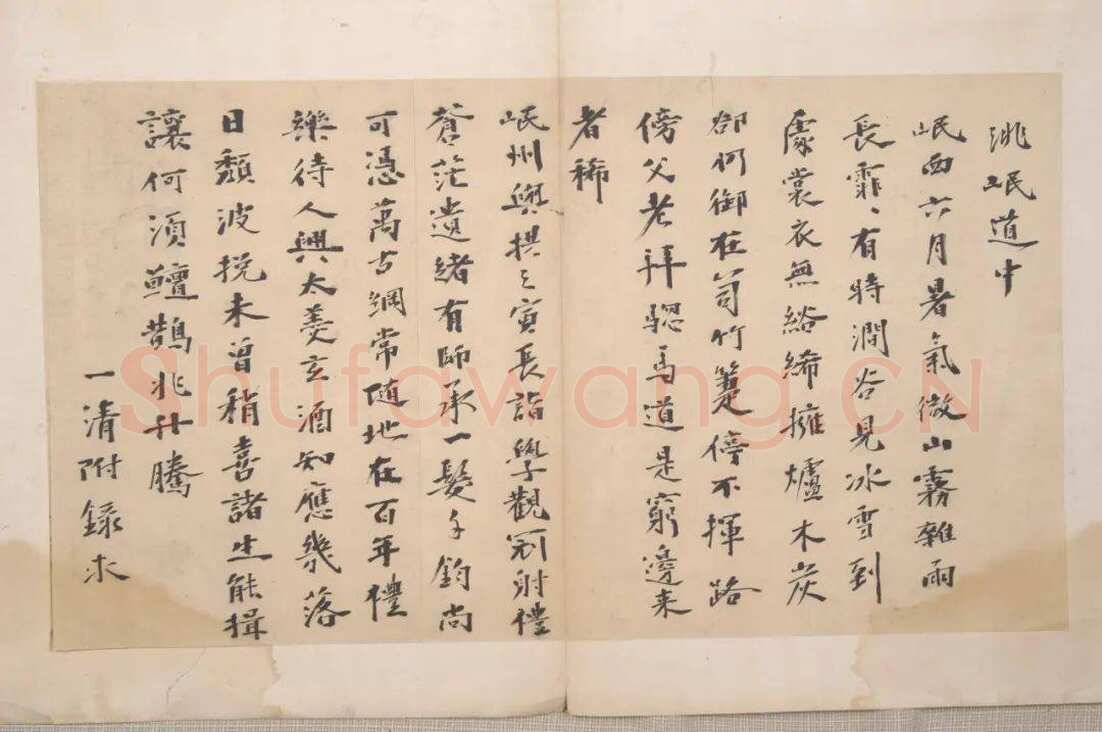 洮岷道中
岷西六月暑氣微山霧雜雨
長霏〻有時澗谷見冰雪到
處裳衣無綌絺擁爐木炭
卻何御在笥竹箑傍不揮路
傍父老拜驄馬道是窮邊来
者稀
岷州與拱之寅長詣學觀冠射禮
蒼茫遺緒有師承一髮千鈞尚
可憑萬古綱常随地在百年禮
樂待人興太羹玄酒知應幾落
日頽波挽未曾稍喜諸生能揖
讓何須鱣鵲兆升騰
一清附錄求
Shufawang.CN